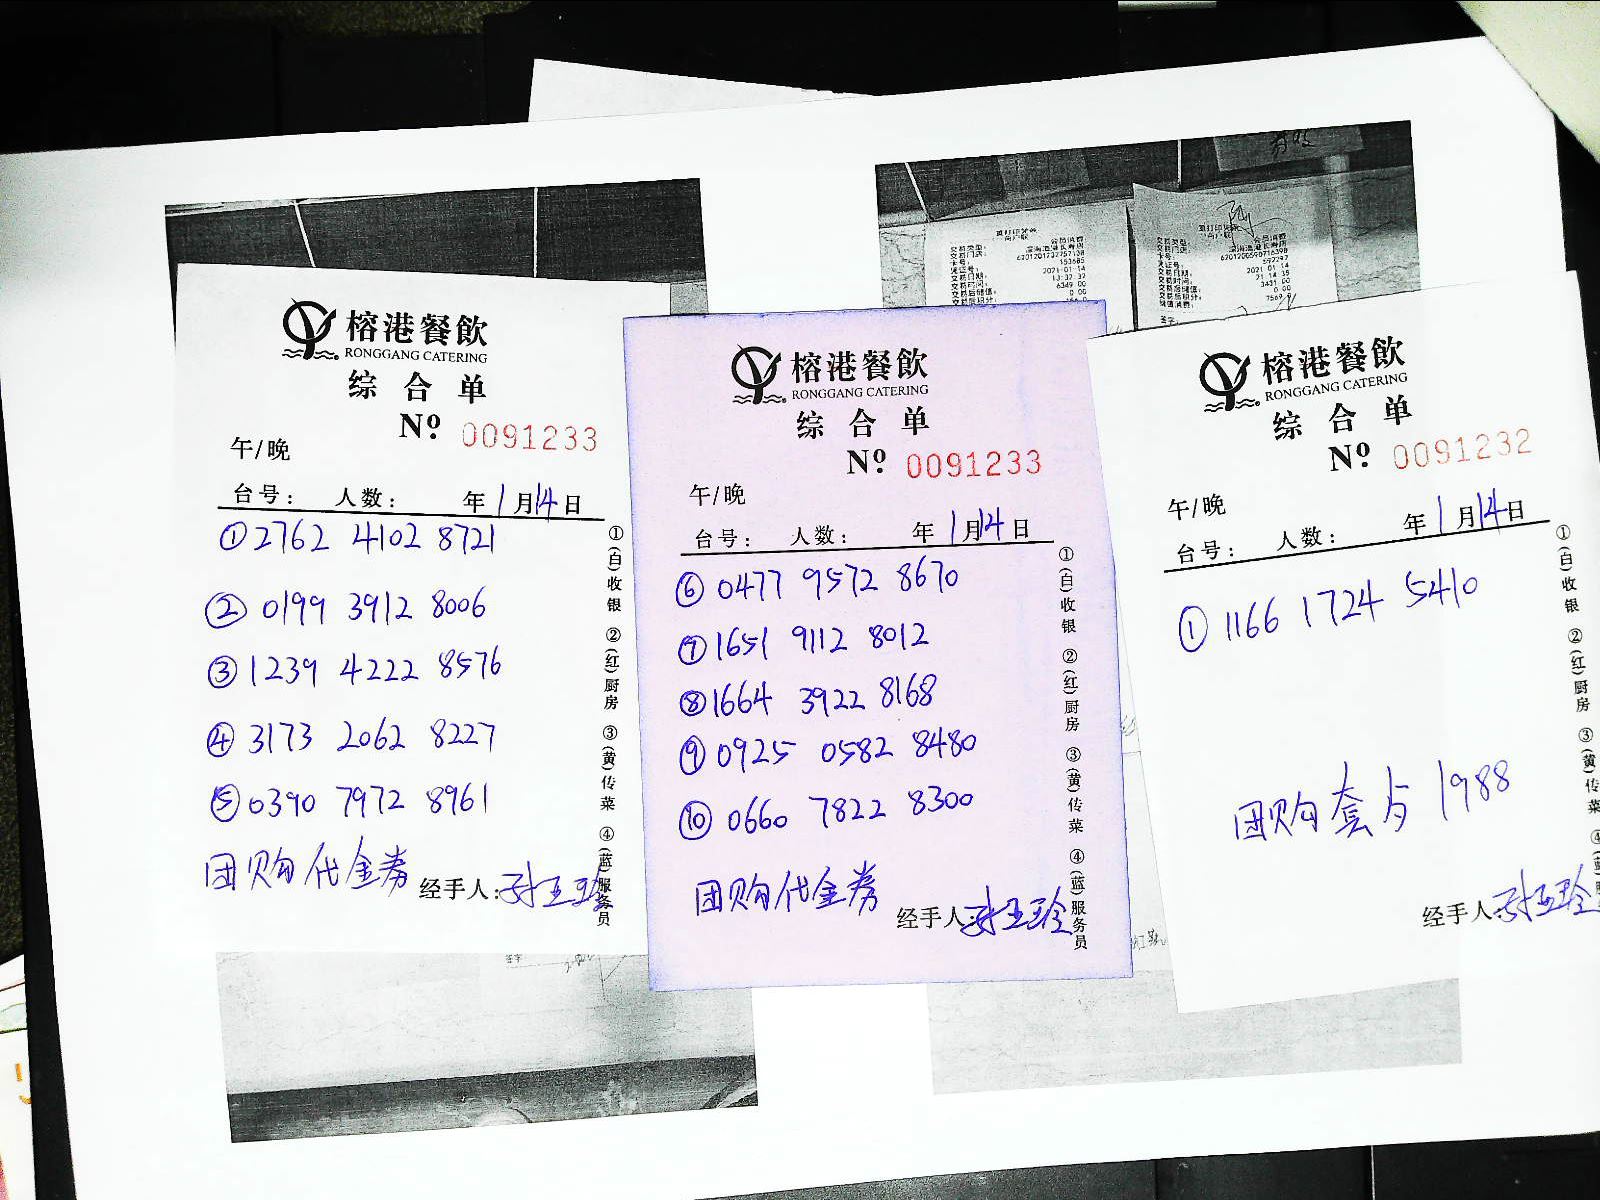 榕港餐飲
RONGGANG CATERING
综合单
Nº 0091233
午/晚
台号： 人数： 年1月14日
①2762 4102 8721
②0199 3912 8006
③1239 4222 8576
④3173 2062 8227
⑤0390 7972 8961
团购代金券 经手人:
①(白)收银 ②(红)厨房 ③(黄)传菜 ④(蓝)服务员
榕港餐飲
RONGGANG CATERING
综合单
Nº 0091233
午/晚
台号： 人数： 年1月14日
⑥0477 9572 8670
⑦1651 9112 8012
⑧1664 3922 8168
⑨0925 0582 8480
⑩0660 7822 8300
团购代金券
经手人
①(白)收银 ②(红)厨房 ③(黄)传菜 ④(蓝)服务员
榕港餐飲
RONGGANG CATERING
综合单
Nº 0091232
午/晚
台号： 人数： 年1月14日
①1166 1724 5410
团购套 1988
经手人
①(白)收银 ②(红)厨房 ③(黄)传菜
交易类型: 会员消费
2021-01-14
13:32:32
6349.00
0.00
交易类型: 会员消费
2021-01-14
3431.00
0.00